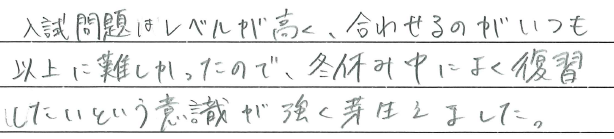 入試問題はレベルが高く、合わせるのがいつも
以上に難しかったので、冬休み中によく復習
したいという意識が強く芽生えました。